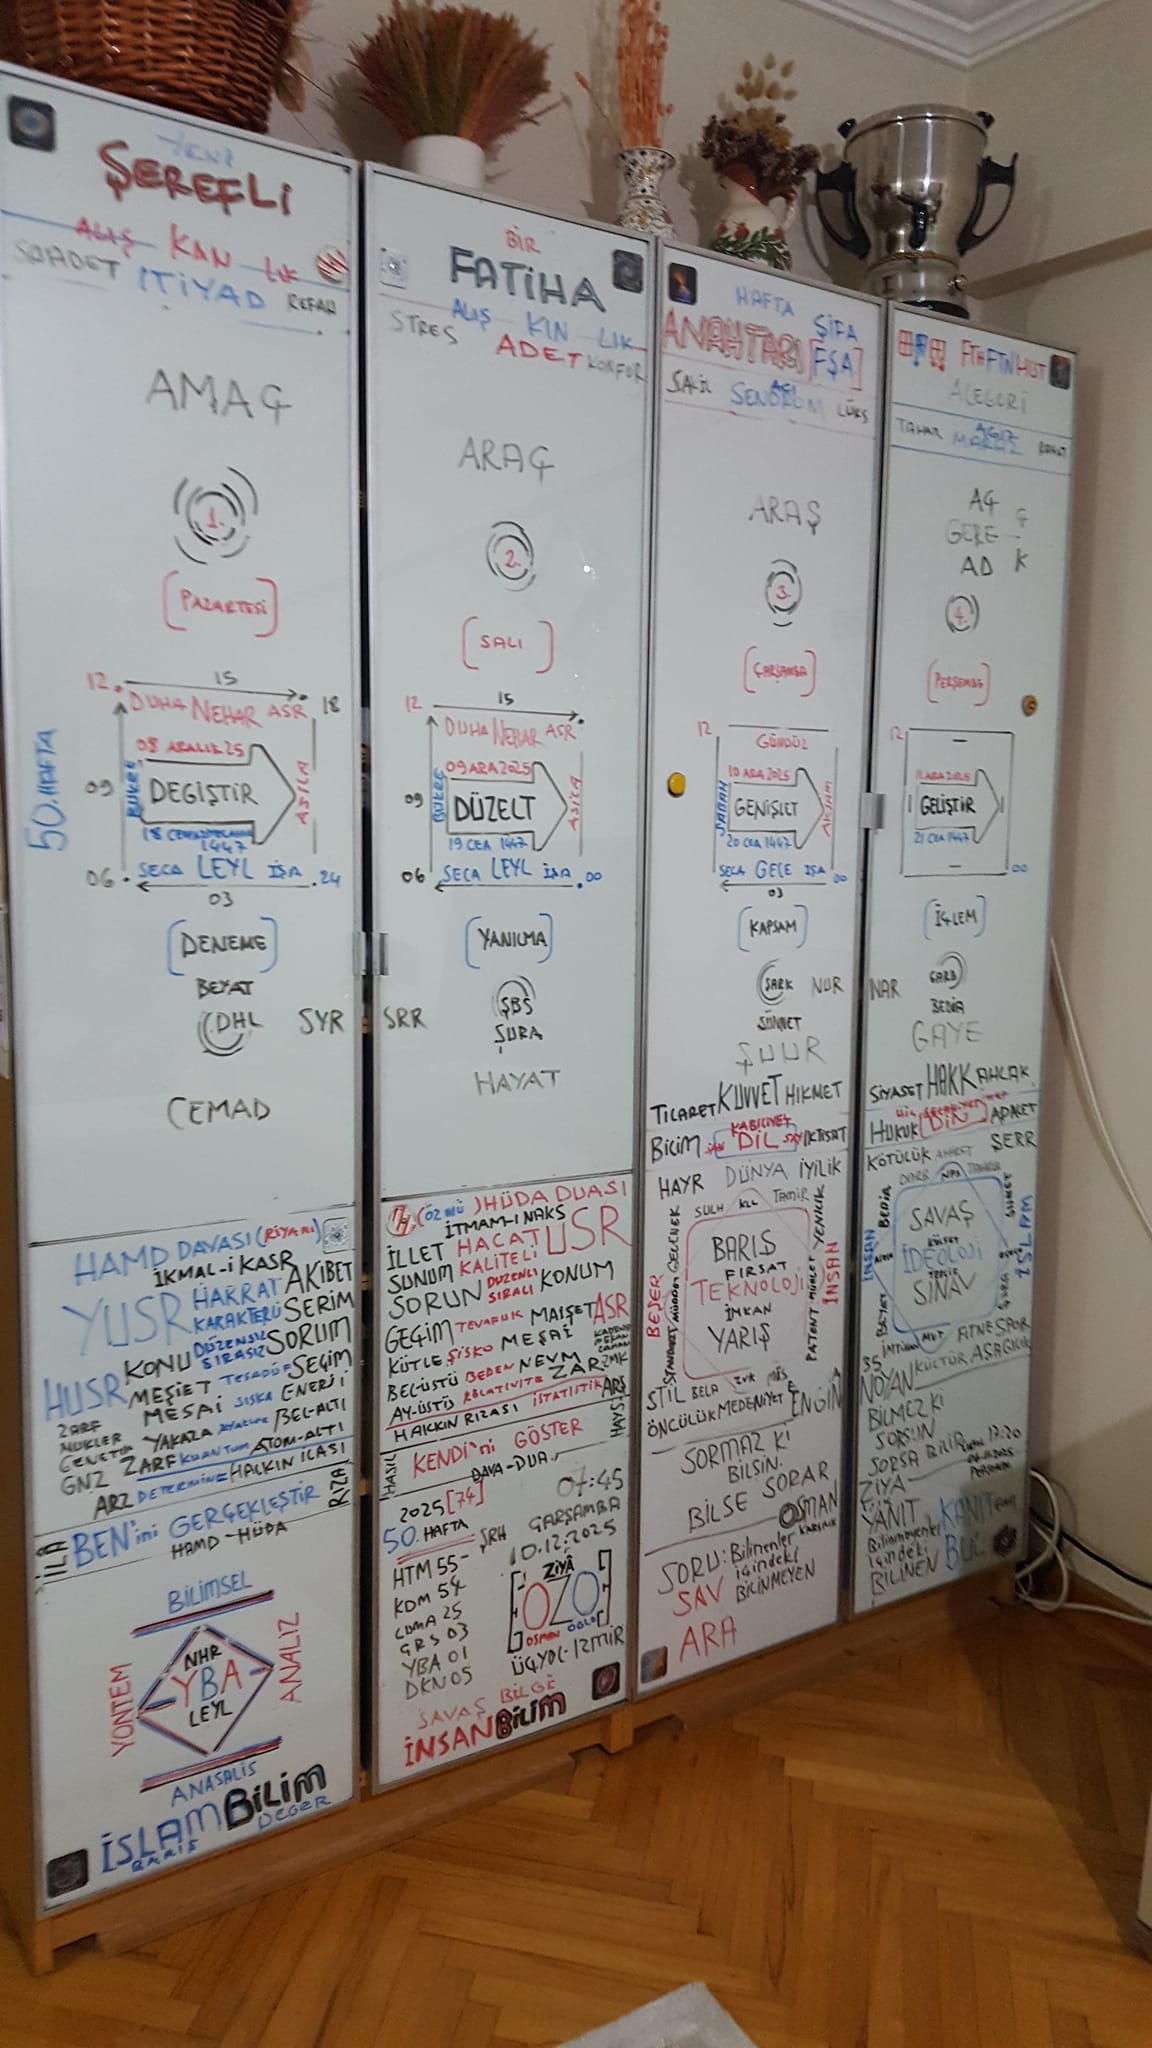 YENİ
ŞEREFLİ
ALIŞ KAN LIK
SAADET İTİYAD REFAH
AMAÇ
1.
[PAZARTESİ]
50. HAFTA
12. 15 18
DUHA NEHAR ASR
08 ARALIK 25
09 DEĞİŞTİR ASİLA
1447
06. SECA LEYL İŞA .24
03
[DENEME]
BEYAT
DHL SYR
CEMAD
HAMD DAVASI (RİYAZİ)
İKMAL-İ KASR
YUSR HARRAT AKİBET
KARAKTERLİ SERİM
KONU DÜZENSİZ SIRASIZ SORUM
HUSR MEŞİET TESADÜF SEÇİM
ZARF MESAİ SISKA ENERJİ
NUKLER YAKAZA BEL-ALTI
GENETİK
GNZ ZARF KUANTUM ATOM-ALTI
ARZ DETERMİNE HALKIN İLASI
İLA BEN'imi GERÇEKLEŞTİR RIZA
HAMD-HÜDA
BİLİMSEL
YÖNTEM NHR YBA LEYL ANALİZ
ANASALİS
İSLAMBİLİM
BARIŞ DEĞER
BİR
FATİHA
ALIŞ KIN LIK
STRES ADET KONFOR
ARAÇ
2.
[SALI]
12 15
DUHA NEHAR ASR
09 ARA 2025
09 DÜZELT ASİLA
19 CEA 1447
06 SECA LEYL İŞA .00
[YANILMA]
SRR ŞBS
ŞURA
HAYAT
(ÖZMÜ) HÜDA DUASI
İTMAM-I NAKS
İLLET HACAT USR
SUNUM KALİTELİ
SORUN DÜZENLİ SIRALI KONUM
GEÇİM TEVAFUK MAİŞET ASR
KÜTLE ŞİŞKO MEŞAİ
BELÜSTÜ BEDEN NEVM ZAR ZMK
AY-ÜSTÜ RELATİVİTE
HALKIN RIZASI İSTATİSTİK ARŞ
HASIL KENDİ'ni GÖSTER
DAVA-DUA
2025 [74] 07:45
50. HAFTA ŞRH ÇARŞAMBA
10.12.2025
HTM 55-
KDM 54
CUMA 25
GRS 03
YBA 01
DKN 05
ZİYÂ
OZO
OSMAN OĞLU
ÜÇYOL-İZMİR
SAVAŞ BİLGE
İNSANBİLİM
HAFTA ŞİFA
ANAHTARI [FŞA]
ACI
SAKİL SENDROM LÜKS
ARAŞ
3.
[ÇARŞAMBA]
12 GÜNDÜZ
10 ARA 2025
SABAH GENİŞLET AKŞAM
20 CEA 1447
SECA GECE İŞA 00
03
[KAPSAM]
ŞARK NUR
SÜNNET
ŞUUR
TİCARET KUVVET HİKMET
KABİLİYET
BİÇİM DİL İKTİSAT
HAYR DÜNYA İYİLİK
SULH KLL TAMİR
BEŞER STANDART MÜDDET GELENEK
BARIŞ
FIRSAT
TEKNOLOJİ
İMKAN
YARIŞ
PATENT MÜHLET YENİLİK İNSAN
STİL BELA ZVK
ÖNCÜLÜK MEDENİYET ENGİN
SORMAZ Kİ
BİLSİN
BİLSE SORAR
OSMAN
SORU: Bilinenler
içindeki
SAV BİLİNMEYEN
ARA
FTH FTN HUT
ALEGORİ
AĞIZ
TAHAR MARAZ RAHAT
AÇ
GERE Ç
AD K
4.
[PERŞEMBE]
12
11 ARA 2025
GELİŞTİR
21 CEA 1447
00
[İÇLEM]
NAR GARB
BEDİA
GAYE
SİYASET HAKK AHLAK
HUKUK [DİN] ADALET
KÖTÜLÜK AHİRET ŞERR
DARB TAHRİB
SAVAŞ
KÜLFET
İDEOLOJİ
SINAV
İNSAN İSLAM
FİTNE SPOR
35 KÜLTÜR AŞAĞILIK
NOYAN
BİLMEZ Kİ
SORSUN
SORSA BİLİR 17:20
ZİYA PERŞEMBE
YANIT KANIT
Bilinmeyenler
içindeki BUL
BİLİNEN